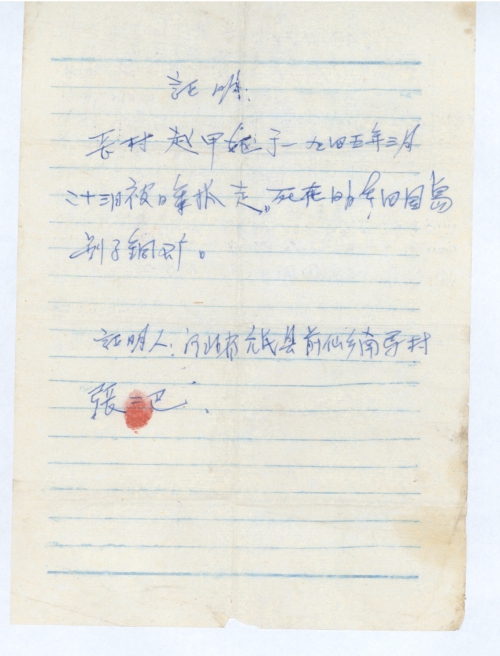 証明
長村 赵甲 于一九四五年三月
二十三日被日军抓走。死在日本四国島
别子銅矿。
証明人：河北省元氏县前仙乡南 村
張二巴